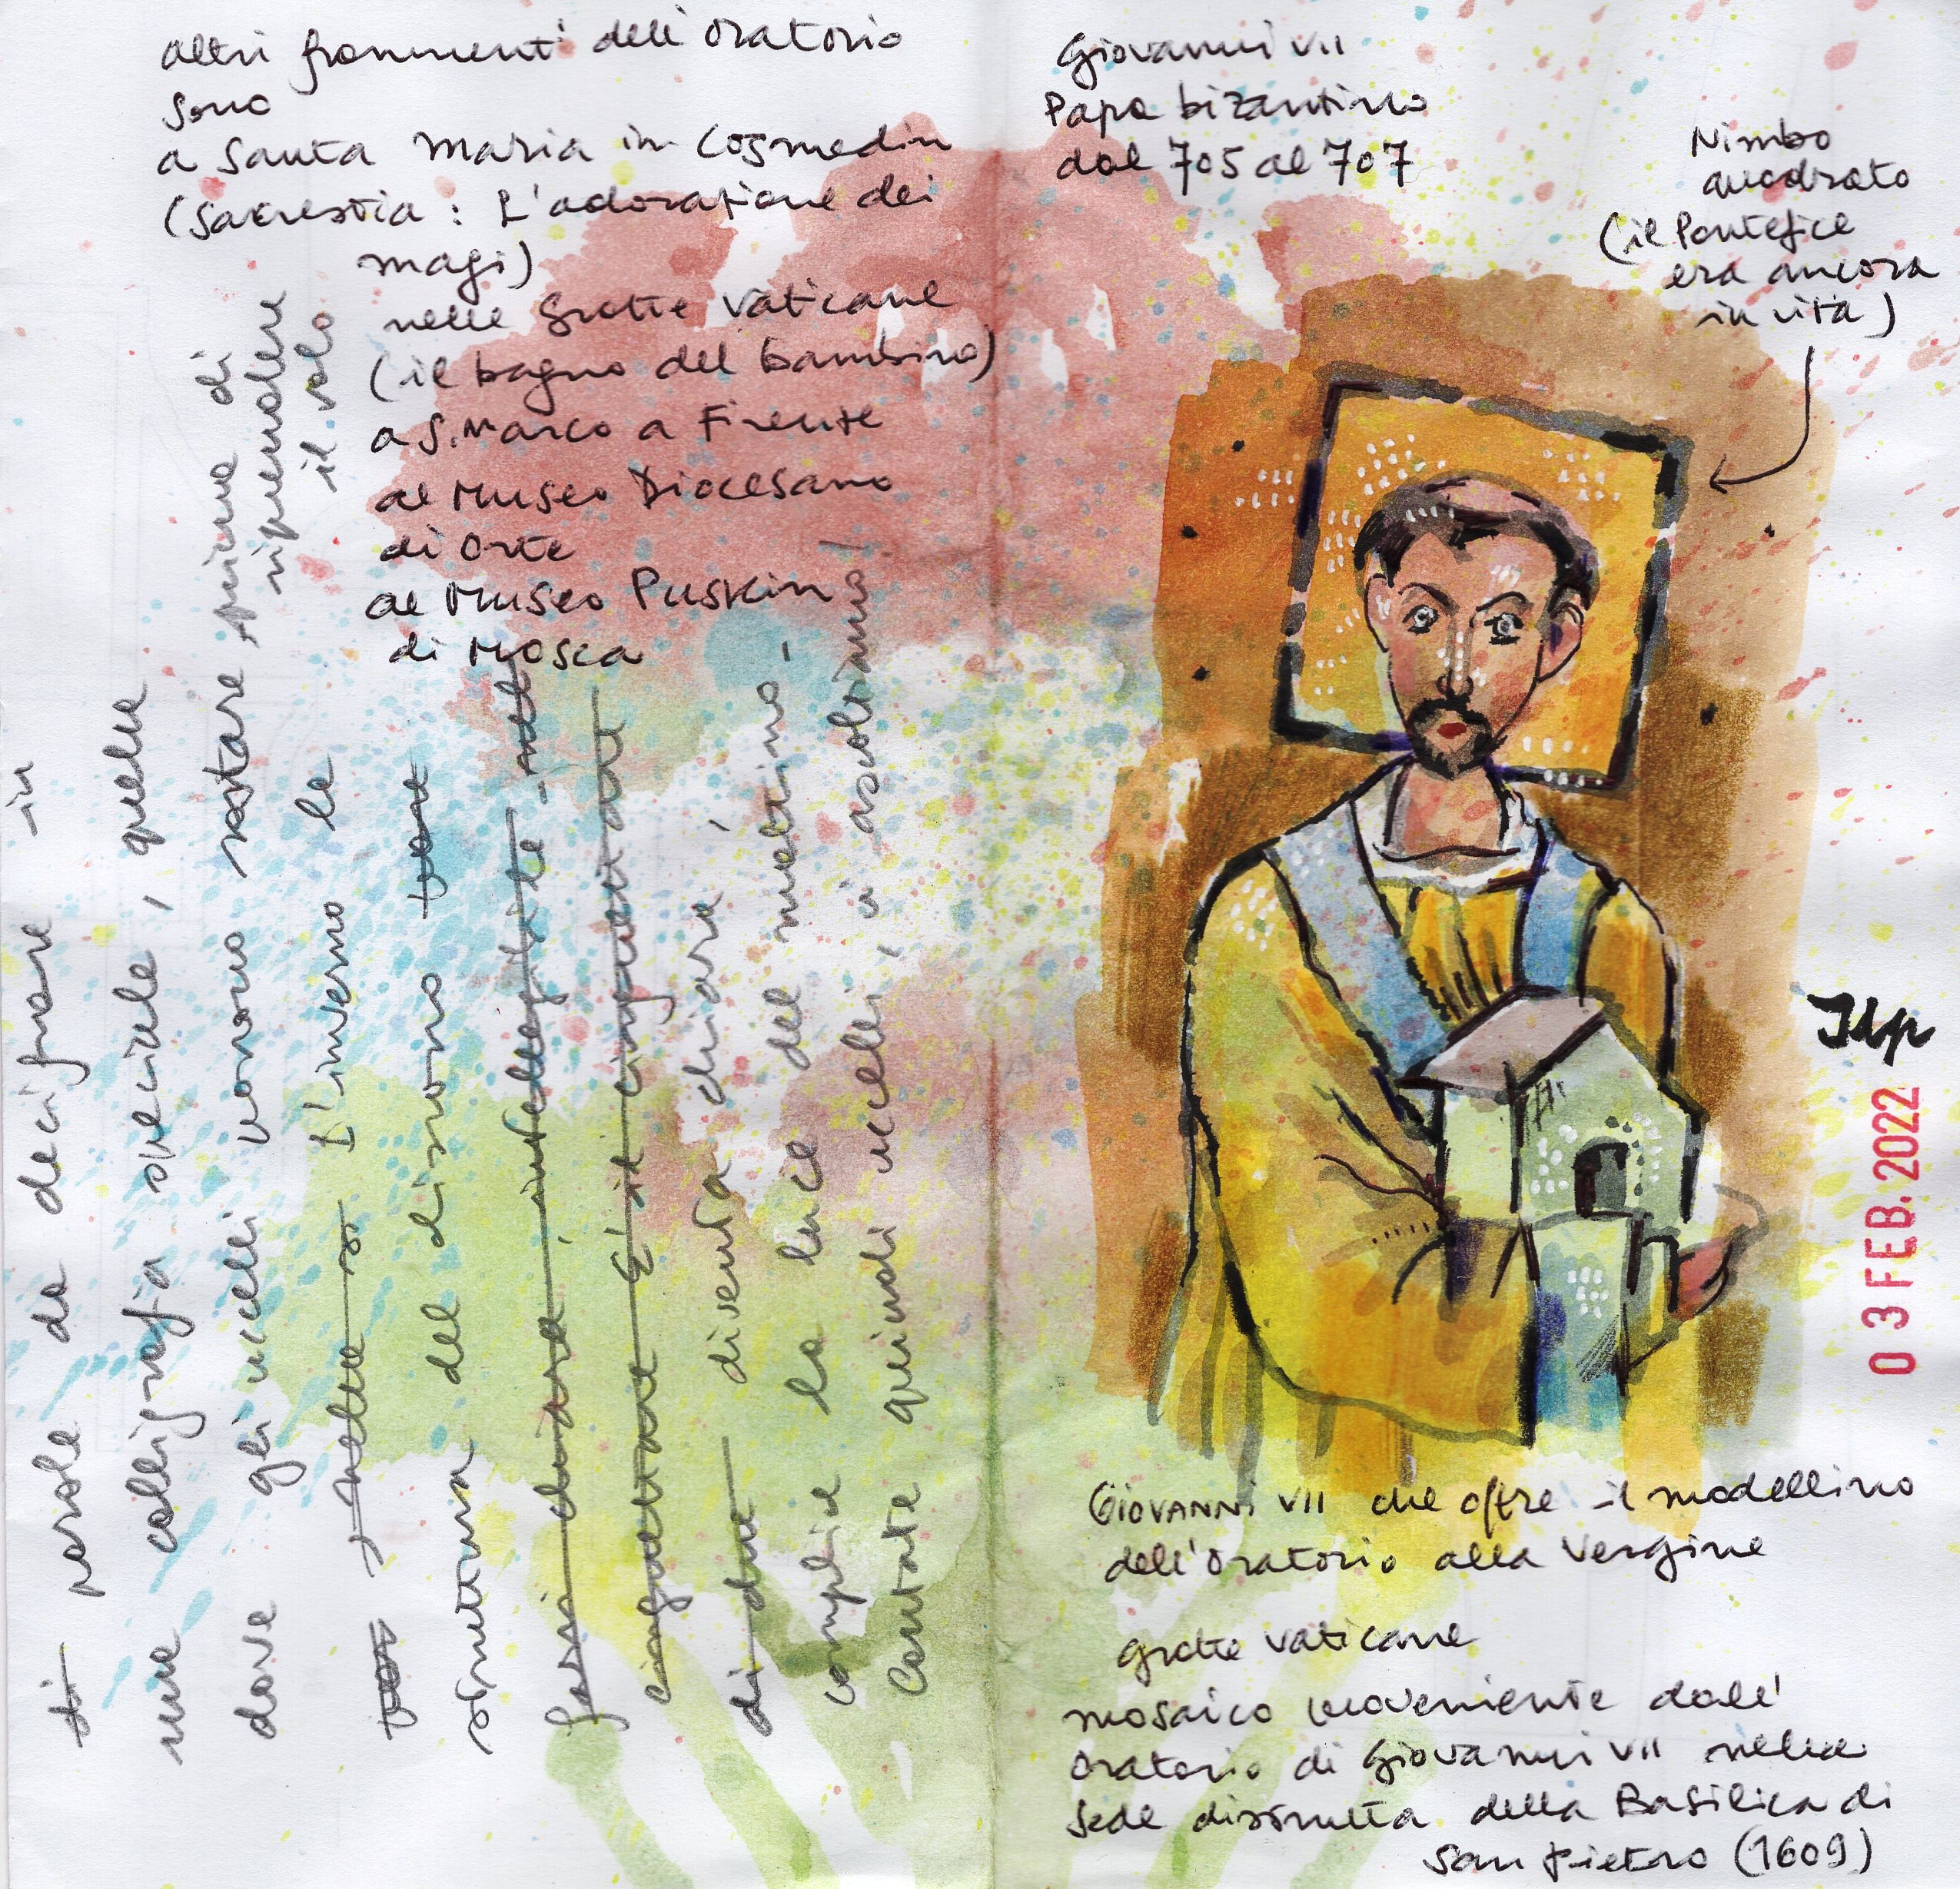 altri frammenti dell'oratorio
sono
a Santa Maria in Cosmedin
(Sacrestia: L'adorazione dei
magi)
nelle grotte Vaticane
(il bagno del bambino)
a S. Marco a Firenze
al Museo Diocesano
di Orte
al Museo Puskin
di Mosca
Giovanni VII
Papa bizantino
dal 705 al 707
Nimbo
quadrato
(il Pontefice
era ancora
in vita)
Idp
03 FEB. 2022
GIOVANNI VII che offre il modellino
dell'Oratorio alla Vergine
grotte vaticane
mosaico proveniente dall'
oratorio di Giovanni VII nella
sede distrutta della Basilica di
San Pietro (1609)
di parole da decifrare in
una calligrafia speciale, quella
dove gli uccelli vanno sostare prima di
riprendere
il volo
L'inverno le
struttura del disegno
farsi chiara, intellegibile
cinguettare
di due diventa chiara,
complice la luce del mattino,
Cantate quindi uccelli, vi ascoltiamo